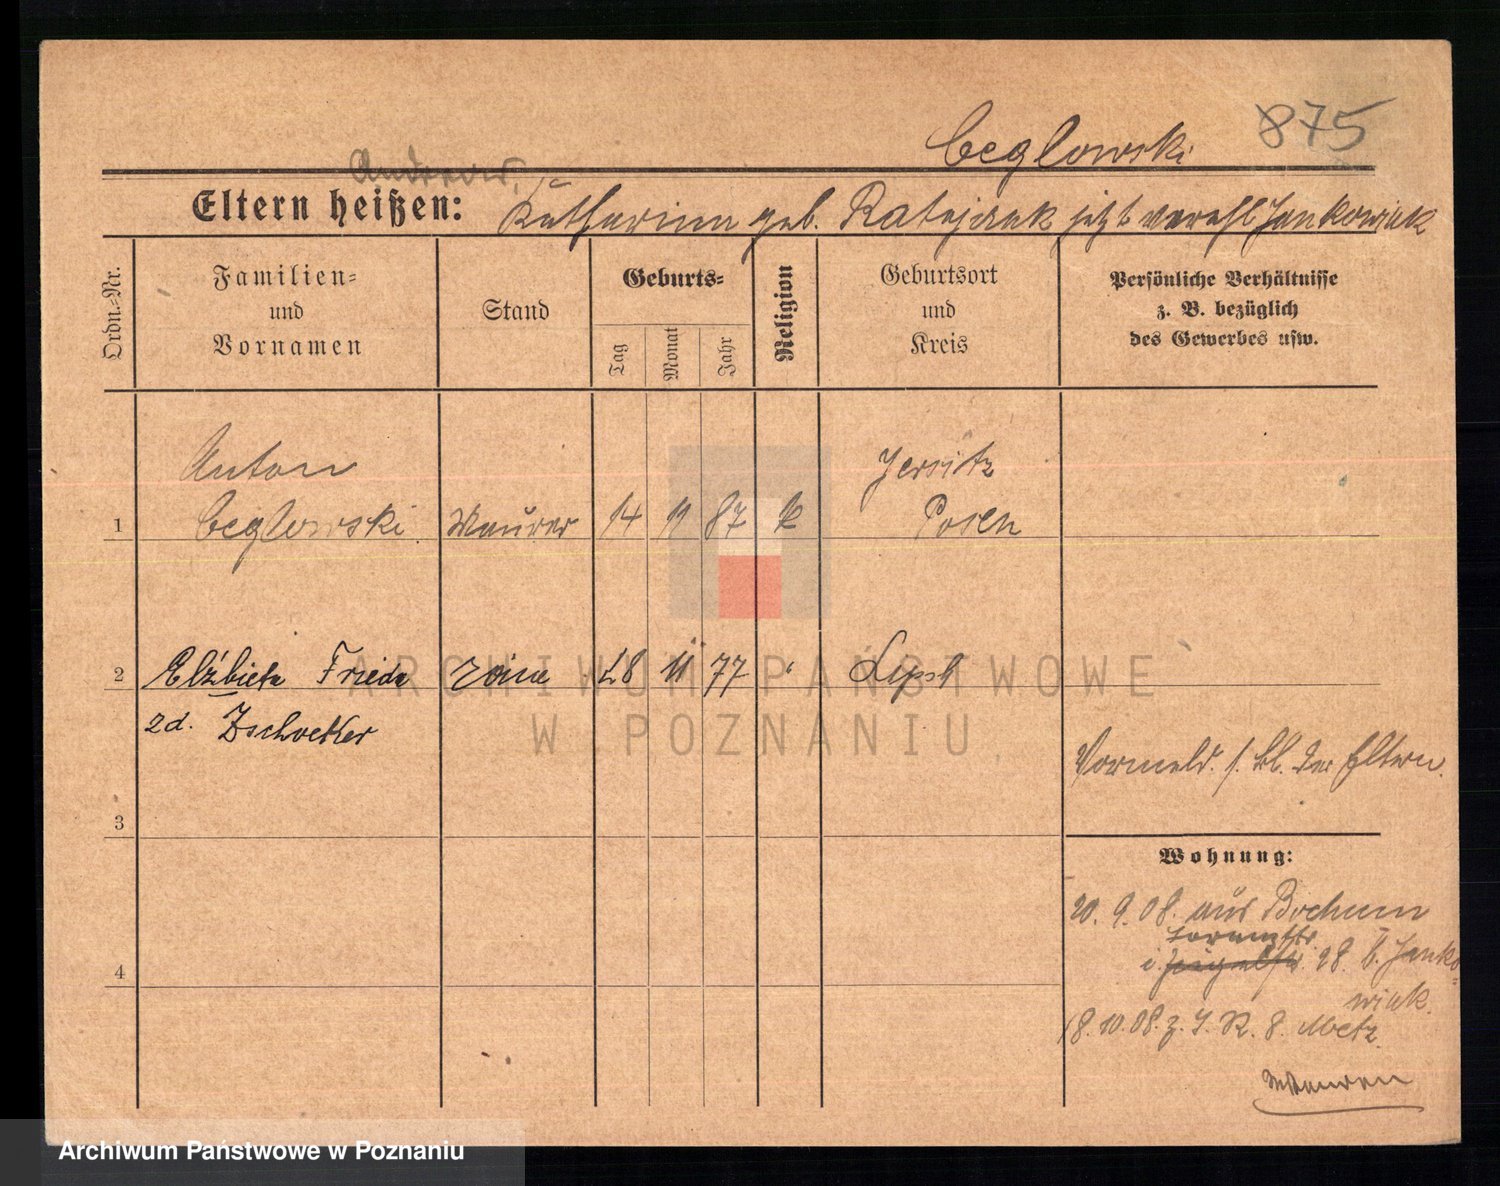 Ceglowski 875
Andreas.
Eltern heißen: Katharina geb. Ratajczak jetzt verehl. Jankowiak
Ordn.-Nr.
Familien-
und
Vornamen
Stand
Geburts-
Tag
Monat
Jahr
Religion
Geburtsort
und
Kreis
Persönliche Verhältnisse
z. B. bezüglich
des Gewerbes usw.
Anton Jersitz
1 Ceglowski Maurer 14 11 87 k Posen
2 Elżbieta Frieda 28 11 77
zd. Zschocker
Vormeld. s. bl. der Eltern.
3
Wohnung:
20. 9. 08. aus Bochum
4
28. b. Janko-
wiak.
18. 10. 08. z. I. R. 8. Metz.
ARCHIWUM PAŃSTWOWE
W POZNANIU
Archiwum Państwowe w Poznaniu